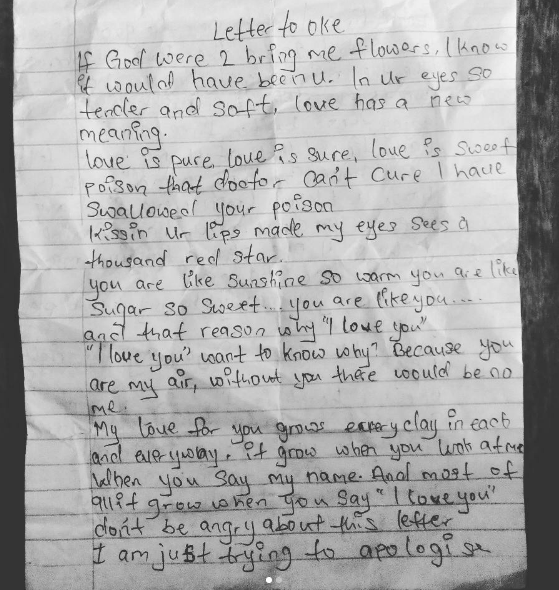 Letter to oke
If God were 2 bring me flowers, I know
it would have been u. In ur eyes so
tender and soft, love has a new
meaning.
love is pure, love is sure, love is sweet
poison that doctor can't cure I have
swallowed your poison
kissin ur lips made my eyes sees a
thousand red star.
you are like sunshine so warm you are like
sugar so sweet... you are like you....
and that reason why "I love you"
"I love you" want to know why? Because you
are my air, without you there would be no
me.
My love for you grows every day in each
and everyway. it grow when you look at me
when you say my name. And most of
all it grow when you say "I love you"
don't be angry about this letter
I am just trying to apologise